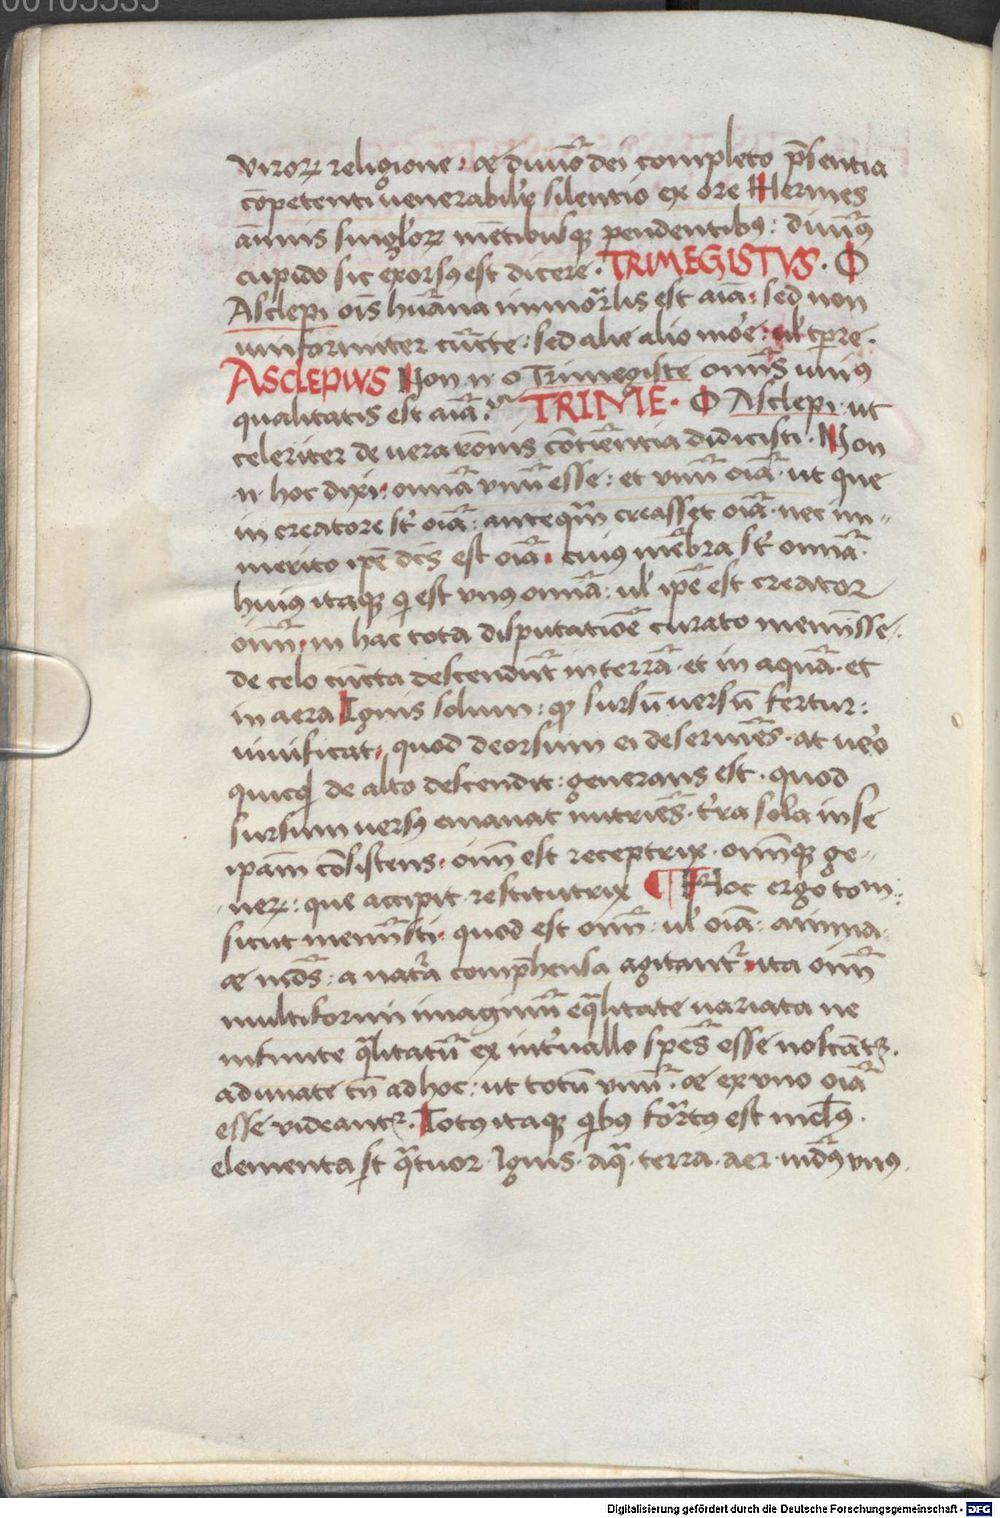 00105535
viroꝝ religione· ⁊ divīo dei completo p̄sentia
cōpetenti venerabilit̄ silentio ex ore Hermes
aīmis singl̓oꝝ mētibusqꝫ pendentibꝰ: divinꝰ
cupido sic exorsꝰ est dicere· TRIMEGISTVS· O
Asclepi oīs hūana immorl̓is est aīa: sed non
uniformiter cūcte: sed alie alio moꝛe: ul̓ tp̄re·
ASCLEPIVS Non .n. o Trimegiste omīs uniꝰ
qualitatis est aīa? TRIME· O Asclepi· ut
celeriter de vera rōnis cōtinētia didicisti· Non
.n. hoc dixi· omīa vnū esse: et vnū oīa· ut que
in creatore st̄ oīa: anteq̄m creasset oīa· nec im〃
merito ip̄e dc̄s est oīa· cuiꝰ mēbra st̄ omīa·
huiꝰ itaqꝫ qi est vnꝰ omīa: ul̓ ip̄e est creator
oīm· in hac tota disputatiōe curato meminīsse·
de celo cūcta descendūt in terrā· et in aquā· et
in aera Ignis solum: qđ sursū versū fertur:
vivificat· quod deorsum ei deserviēs· at vēo
quicqđ de alto descendit: generans est· quod
sursum versꝰ emanat nutriēs· t̄ra sola in se
ipam̄ cōsistens· oīm est receptrix· omīqꝫ ge〃
neꝝ: que accipit restitutrix ¶ Hoc ergo tom̄:
sicut memīsti· quod est oīm: ul̓ oīa· anima·
⁊ mūds: a natᵃra comp̄hensa agitantᵘr· ita oīm
multiformi imaginū eqᵃlitate variata ne
infinite qᵃlitatū ex int̄vallo spēs esse noscātᵘr·
adunate tn̄ ad hoc: ut totū vnū· ⁊ ex vno oīa
esse videantᵘr· Totꝰ itaqꝫ qⁱbꝰ formatꝰ est mūdꝰ·
elementa st̄ qᵃtuor· Ignis· aqᵃ· terra· aer· mūdꝰ vnꝰ·
Digitalisierung gefördert durch die Deutsche Forschungsgemeinschaft - DFG